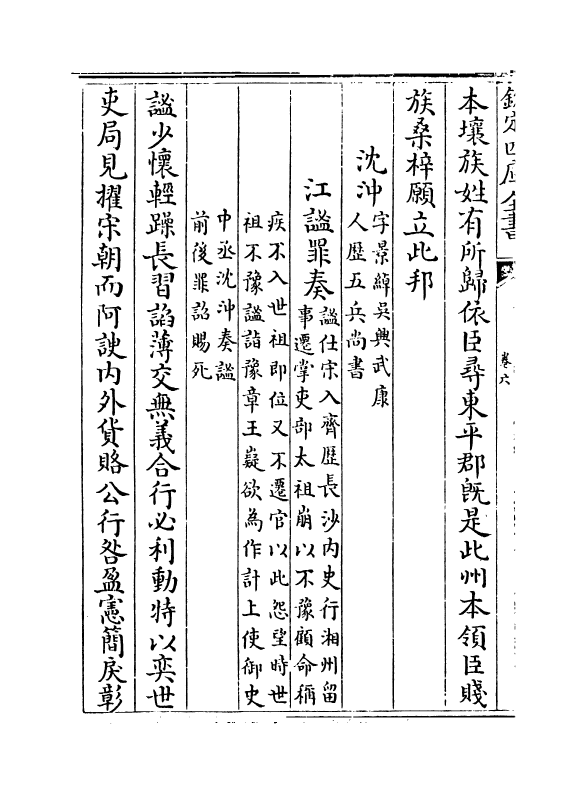 欽定四庫全書
卷六
本壤族姓有所歸依臣尋東平郡既是此州本領臣賤
族桑梓願立此邦
沈沖字景綽吳興武康
人歷五兵尚書
江謐罪奏謐仕宋入齊歷長沙內史行湘州留
事遷掌吏部太祖崩以不豫顧命稱
疾不入世祖即位又不遷官以此怨望時世
祖不豫謐詣豫章王嶷欲為作計上使御史
中丞沈沖奏謐
前後罪詔賜死
謐少懷輕躁長習諂薄交無義合行必利動特以奕世
吏局見擢宋朝而阿諛內外貨賂公行咎盈憲簡戾彰